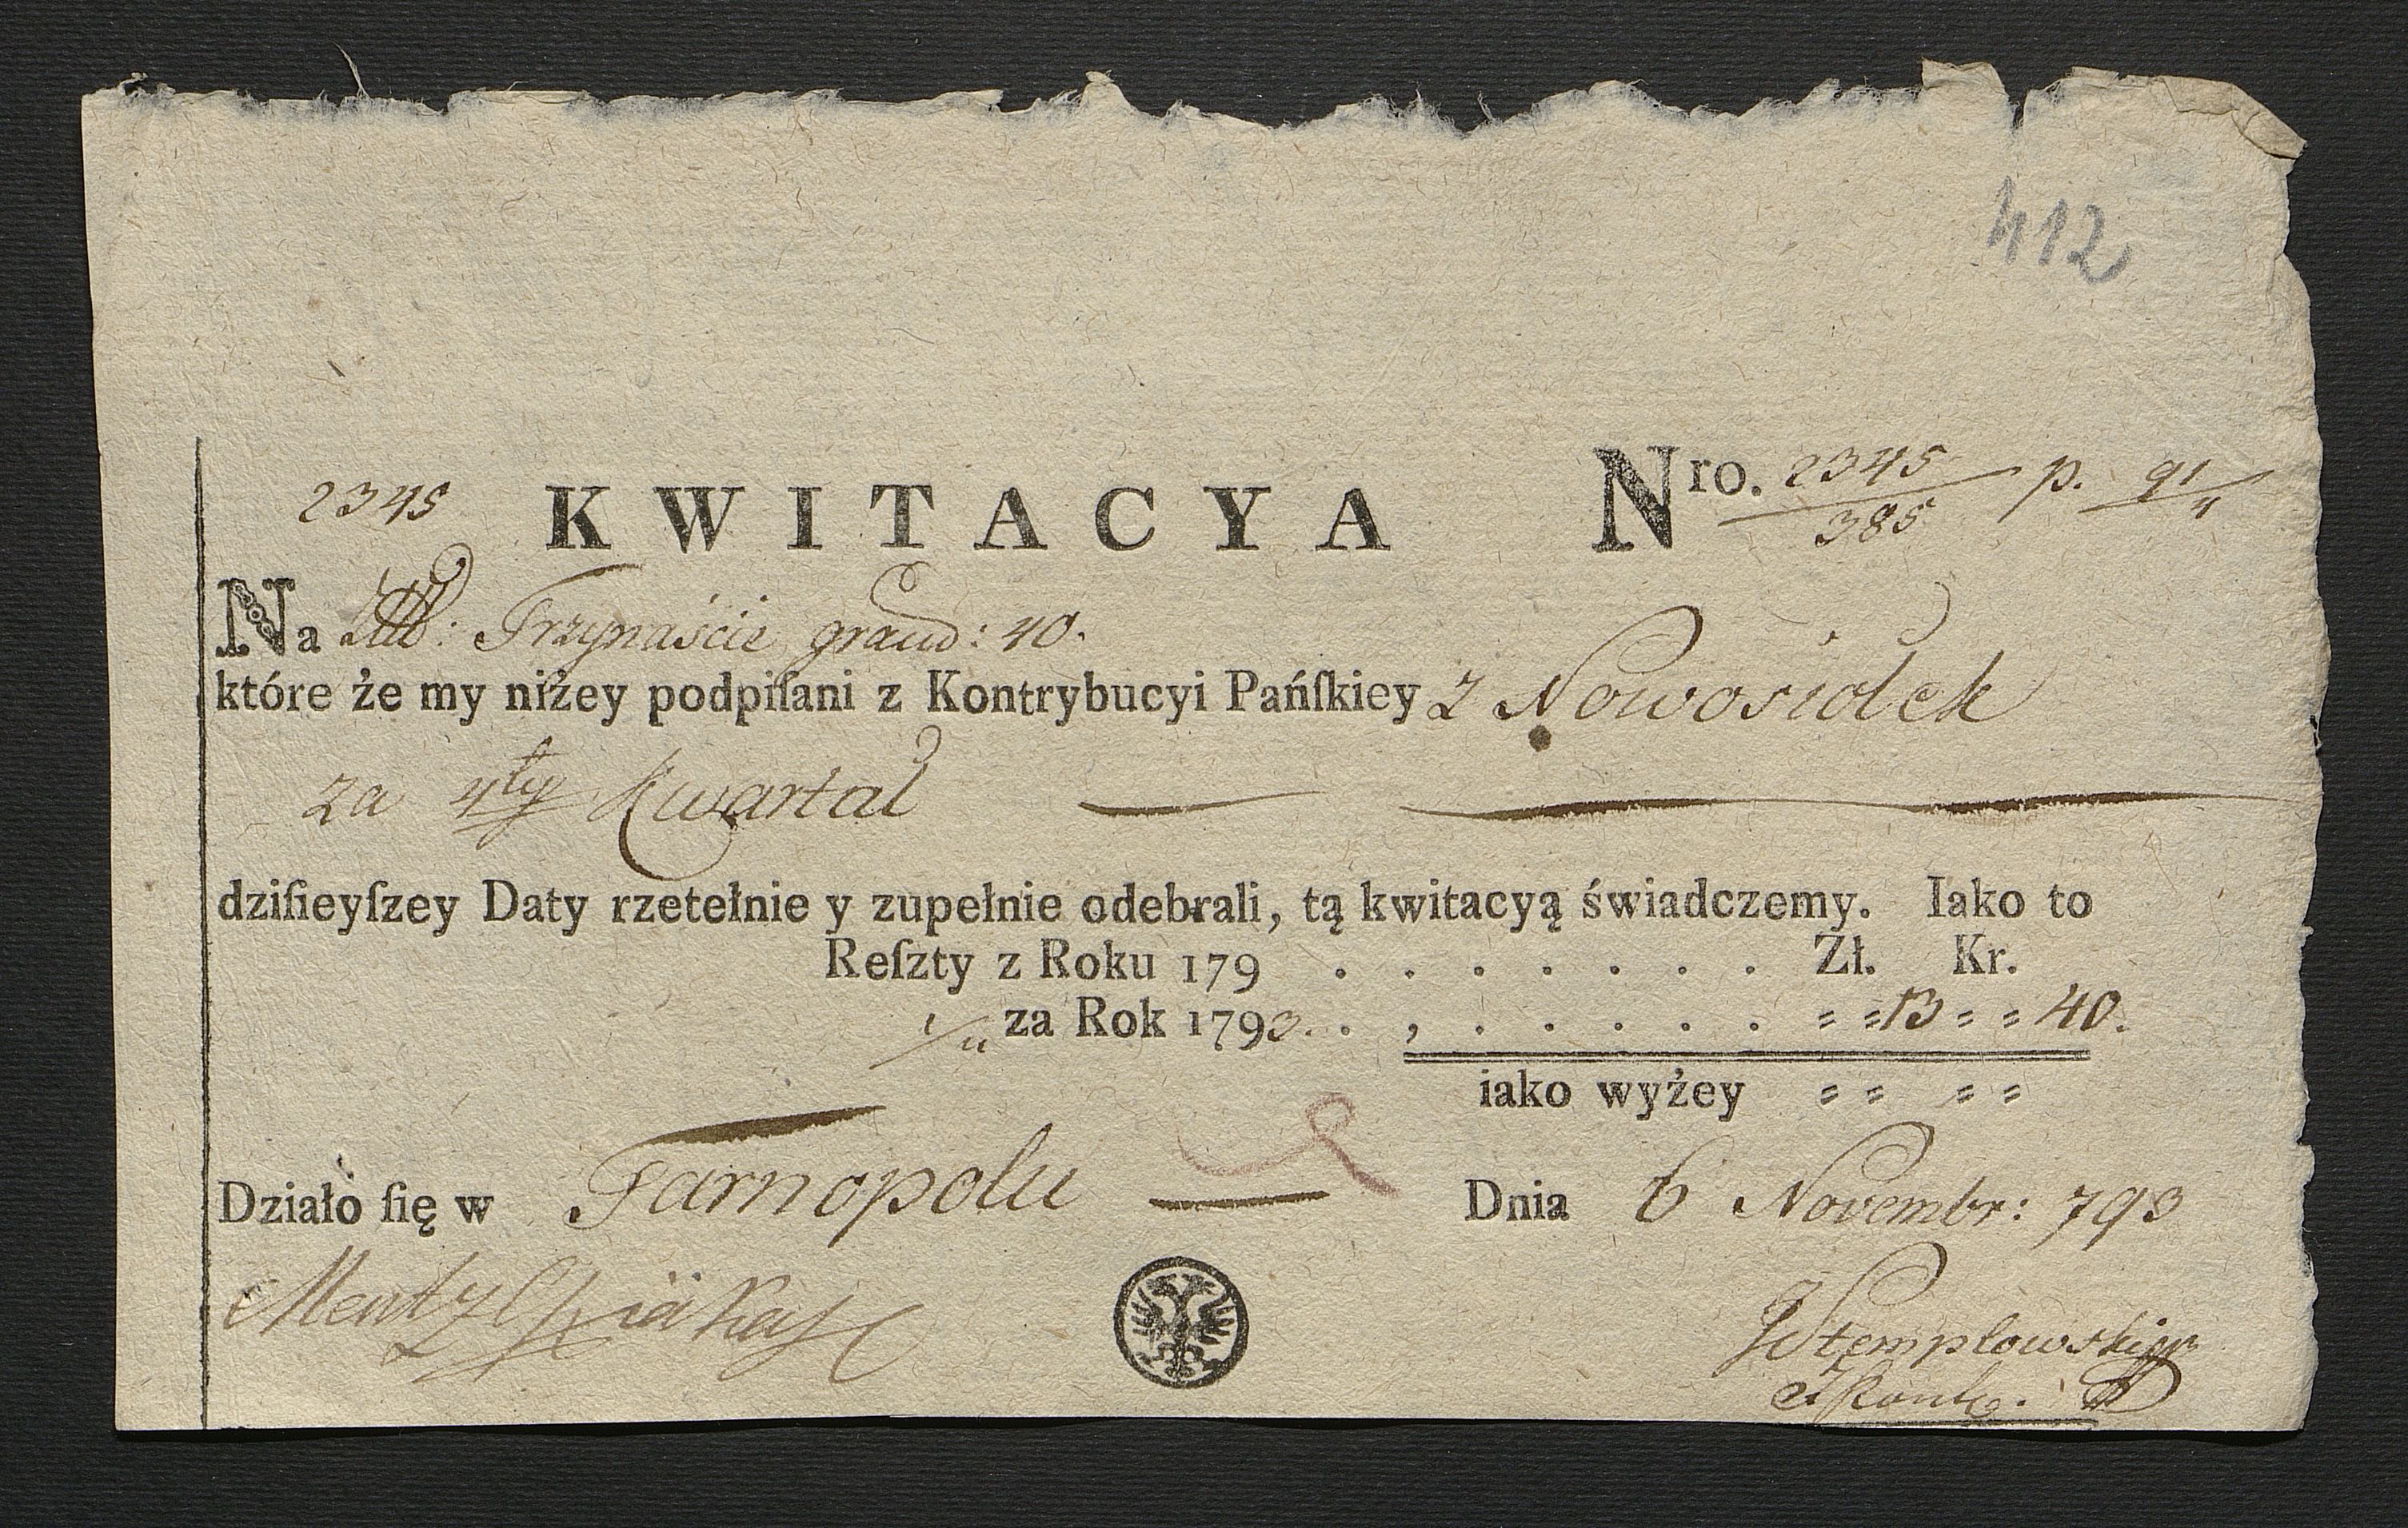 412
2345 KWITACYA Nro. 2345/385 p. 91/4
Na Trzynaście graud: 40.
które że my niżey podpiſani z Kontrybucyi Pańſkiey z Nowosiołek
za 4ty Kwartał
dziſieyſzey Daty rzetełnie y zupełnie odebrali, tą kwitacyą świadczemy. Iako to
Reſzty z Roku 179 . . . . . . . Zł. Kr.
za Rok 1793. . , . . . . . 13 40.
iako wyżey
Działo ſię w Tarnopolu Dnia 6 Novembr: 793